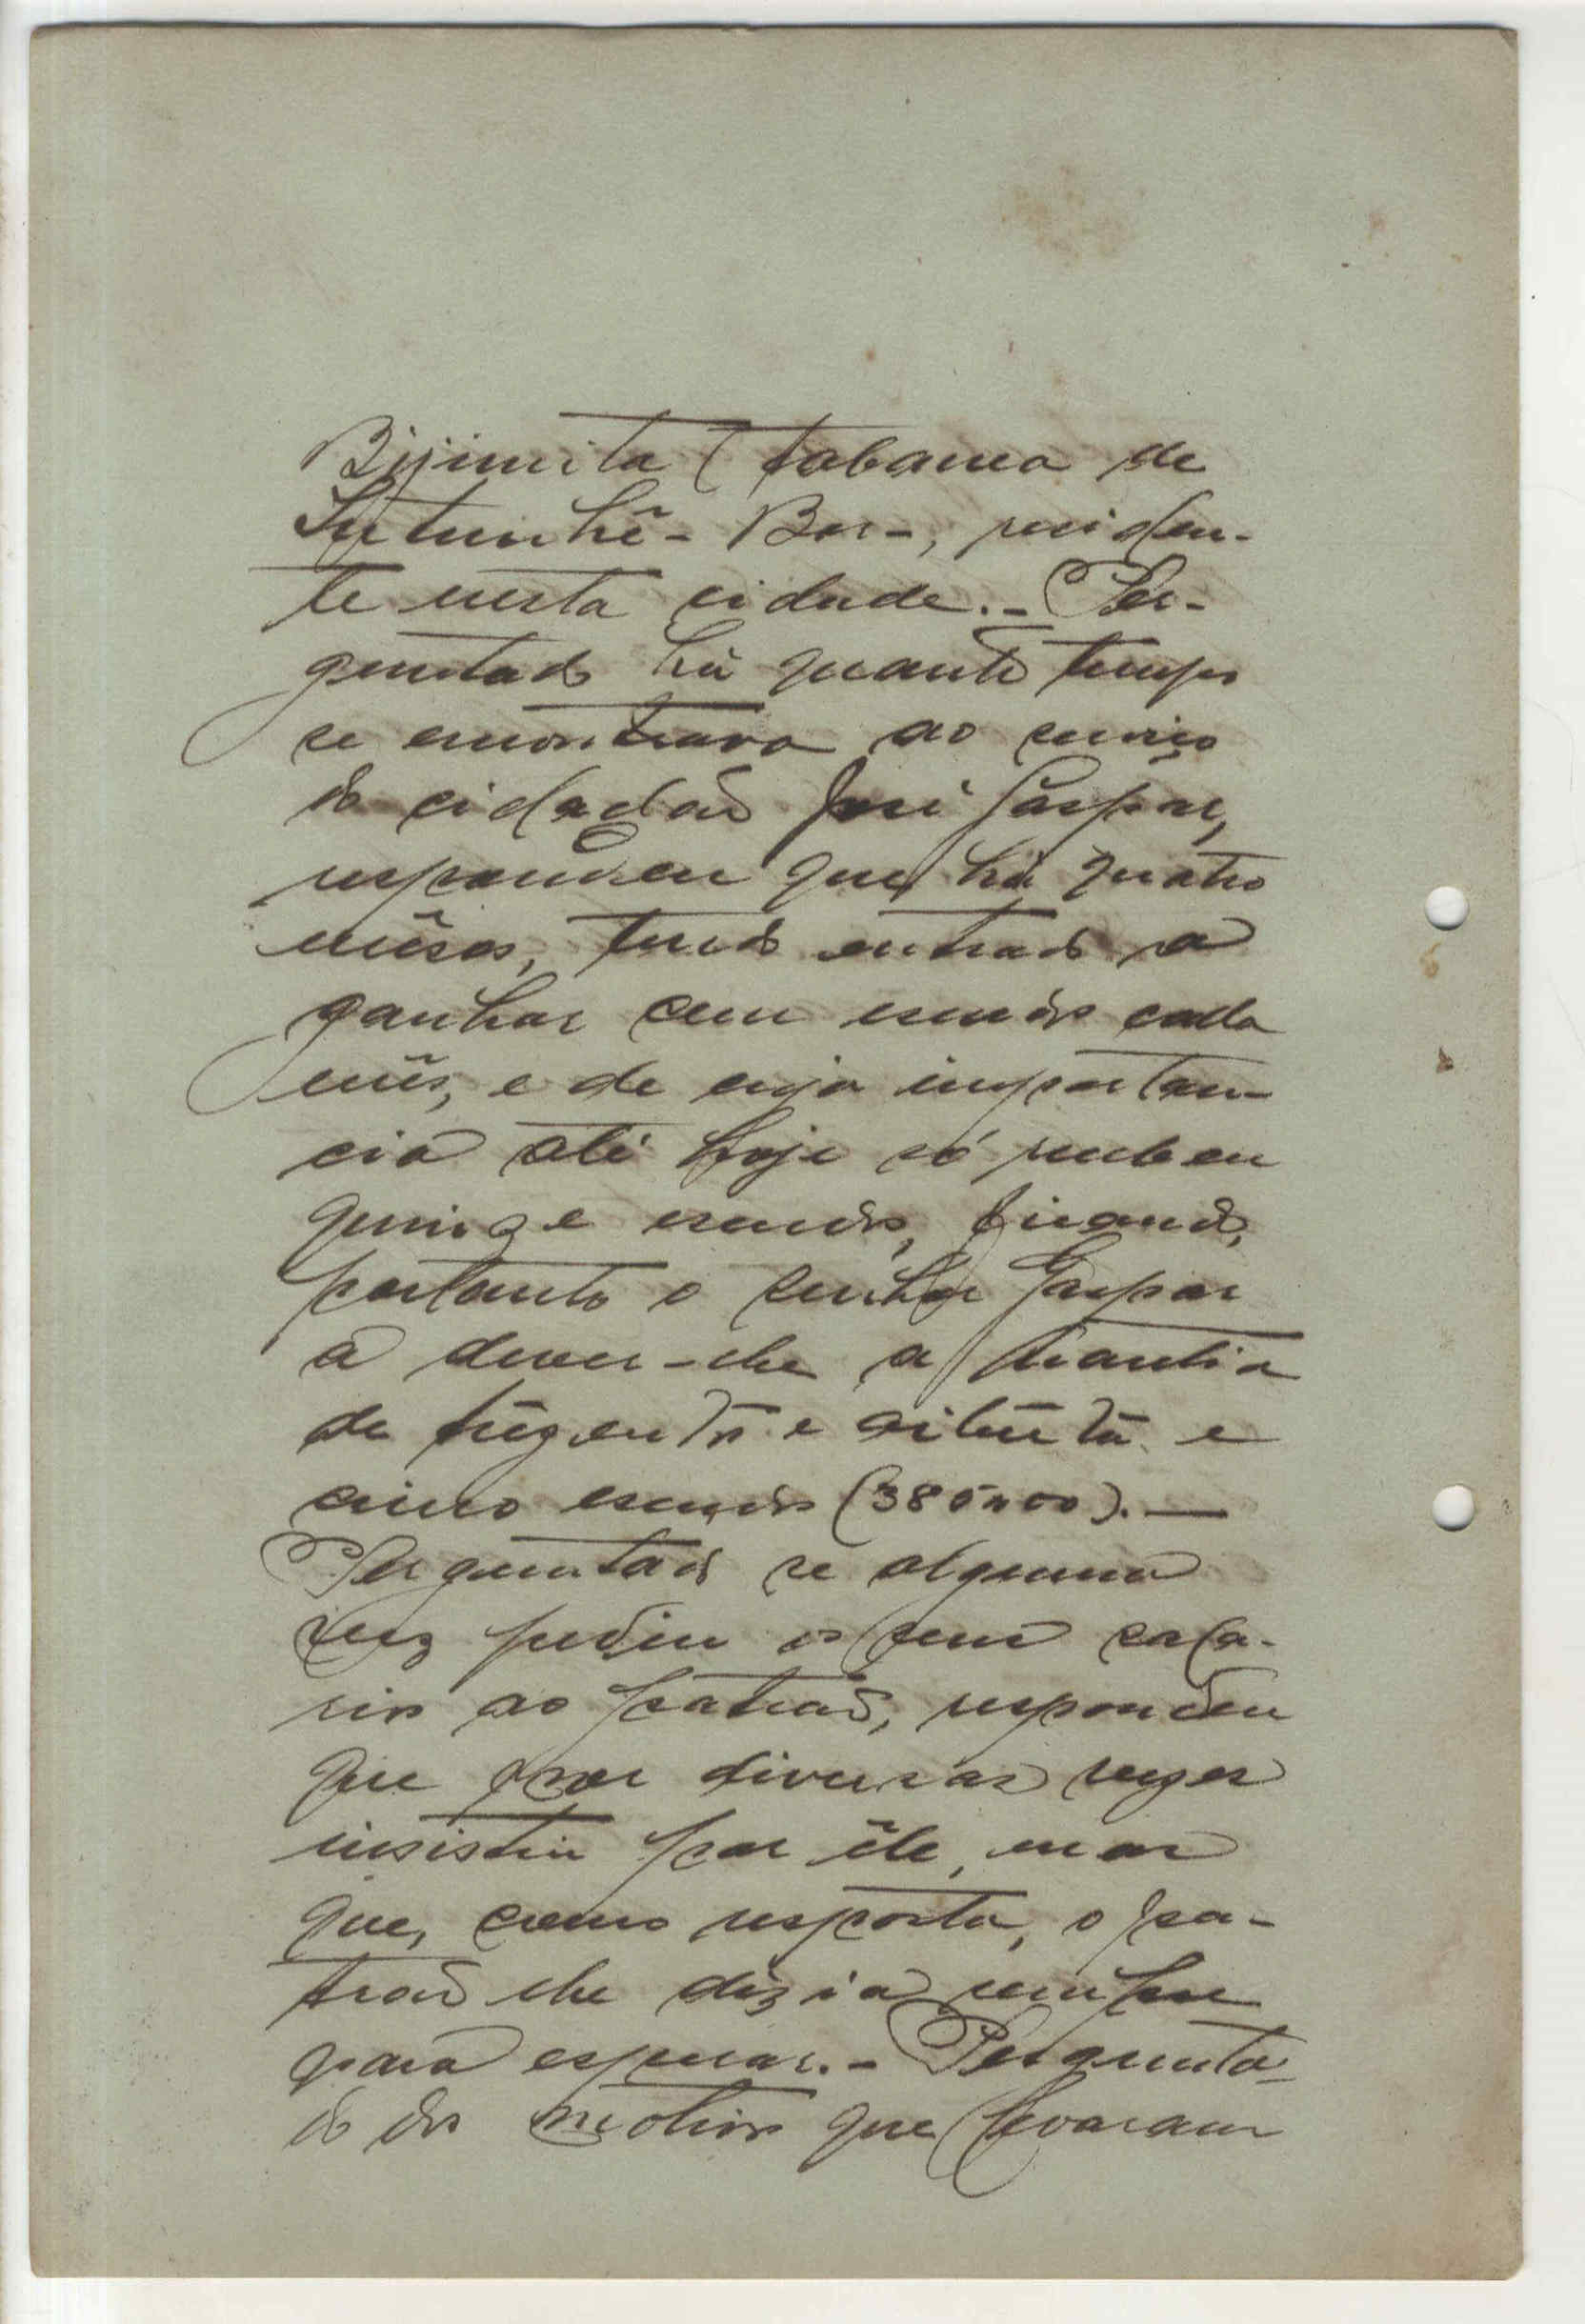 Bijimita (tabanca de
- Bor -, residen-
te nesta cidade. - Per-
guntado há quanto tempo
se encontrava ao serviço
do cidadão José Gaspar,
respondeu que há quatro
mêses, tendo entrado a
ganhar cem escudos cada
mês, e de cuja importan-
cia até hoje só recebeu
quinze escudos, ficando,
portanto o senhor Gaspar
a dever-lhe a quantia
de trezentos e oitenta e
cinco escudos (385$00). —
Perguntado se alguma
vez pediu os seus sala-
rios ao patrão, respondeu
que por diversas vezes
insistiu por êle, mas
que, como resposta, o pa-
trão lhe dizia sempre
para esperar. - Pergunta-
do dos motivos que levaram